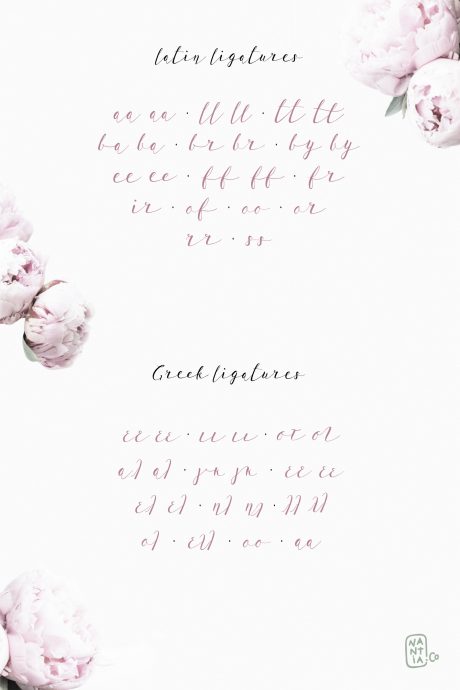 latin ligatures
aa aa · ll ll · tt tt
ba ba · br br · by by
ee ee · ff ff · fr
ir · of · oo · or
rr · ss
Greek ligatures
ιι ιι · οτ ολ
αλ αλ ·
ελ ελ · · λλ λλ
ολ · ελλ · οο · αα
NANTIA.Co